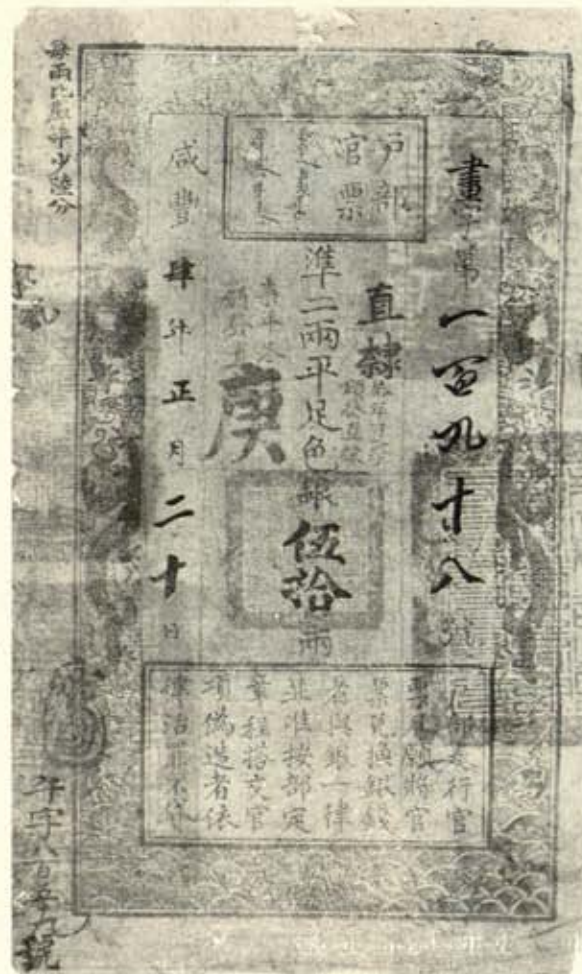 每兩比庫平少陸分
戶部
官票
畫字第一百九十八號
直隸
準二兩平足色銀伍拾兩
庚
咸豐肆年正月二十日
戶部奏行官
票凡願將官
票兌換銀錢
者與銀一律
並準按部定
章程搭交官
項偽造者依
律治罪不貸
午字八百
號